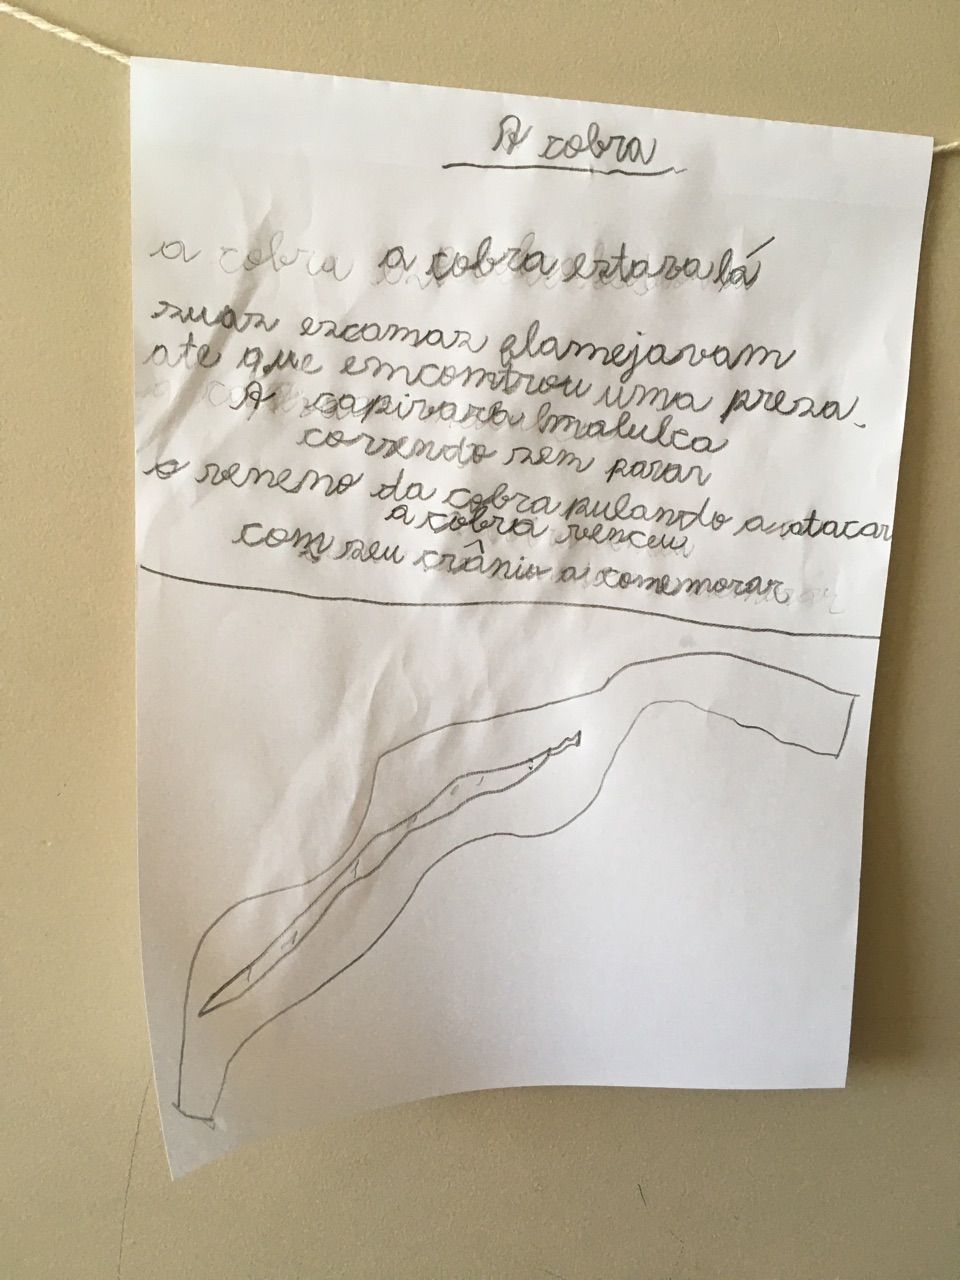 A cobra
a cobra a cobra estava lá
suas escamas flamejavam
ate que emcomtrou uma presa.
A capivara malulca
correndo sem parar
o veneno da cobra pulando a atacar
a cobra venceu
com seu crânio a comemorar